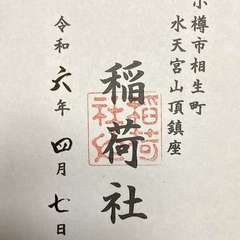 小樽市相生町
水天宮山頂鎮座
稲荷社
令和六年四月七日